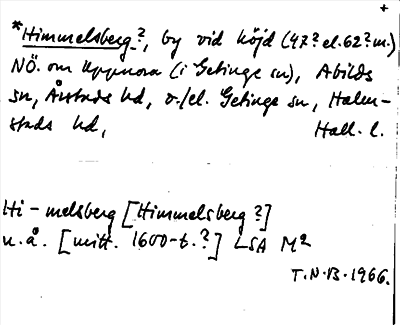 +
*Himmelsberg?, by vid Köjd (47? el. 62? m.)
NÖ. om Uppnora (i Getinge sn), Abilds
sn, Årstads hd, o./el. Getinge sn, Halm-
stads hd, Hall. l.
Hi-melsberg [Himmelsberg?]
u.å. [mitt. 1600-t.?] LSA M²
T.N.B. 1966.